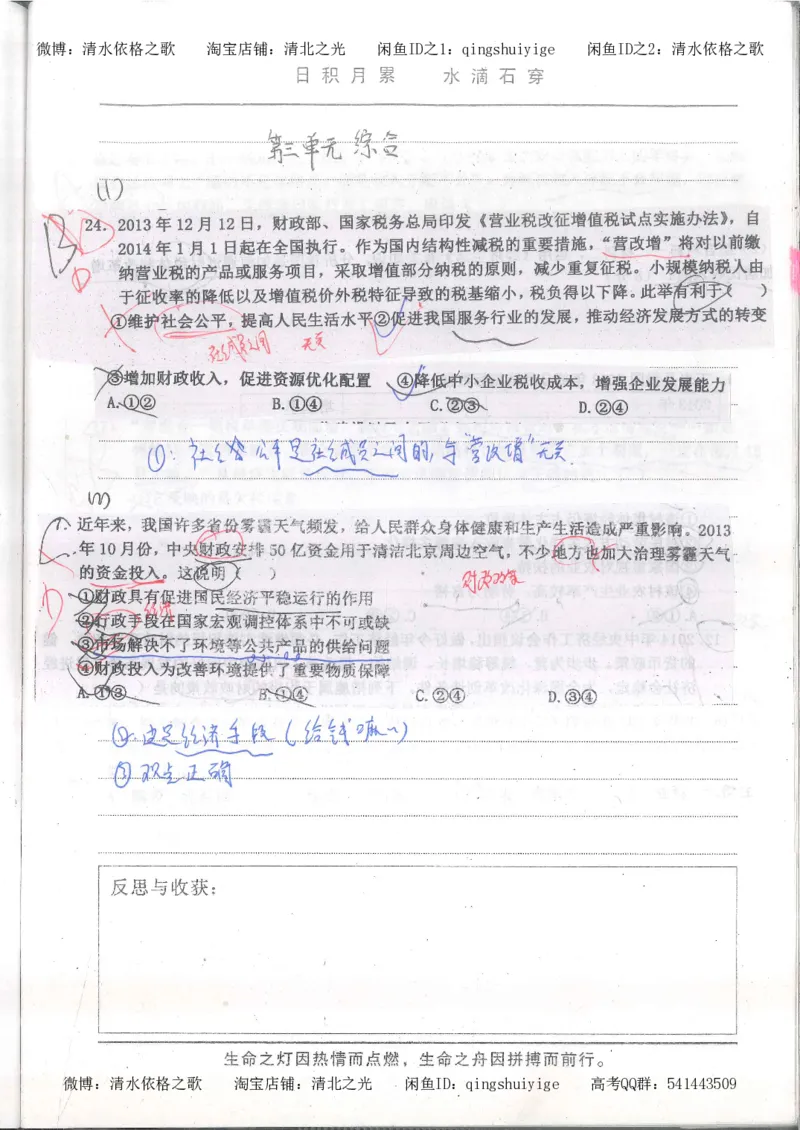 微博：清水依格之歌 淘宝店铺：清北之光 闲鱼ID之1：qingshuiyige 闲鱼ID之2：清水依格之歌
日积月累 水滴石穿
第三单元 综合
(1)
B
D
24. 2013年12月12日，财政部、国家税务总局印发《营业税改征增值税试点实施办法》，自
2014年1月1日起在全国执行。作为国内结构性减税的重要措施，“营改增”将对以前缴
纳营业税的产品或服务项目，采取增值部分纳税的原则，减少重复征税。小规模纳税人由
于征收率的降低以及增值税价外税特征导致的税基缩小，税负得以下降。此举有利于（ ）
①维护社会公平，提高人民生活水平②促进我国服务行业的发展，推动经济发展方式的转变
社会成员之间 无关
③增加财政收入，促进资源优化配置 ④降低中小企业税收成本，增强企业发展能力
A.①② B.①④ C.②③ D.②④
①：社会公平是社会成员之间的，与“营改增”无关.
7、近年来，我国许多省份雾霾天气频发，给人民群众身体健康和生产生活造成严重影响。2013
年10月份，中央财政安排50亿资金用于清洁北京周边空气，不少地方也加大治理雾霾天气
的资金投入。这说明（ ）
D
①财政具有促进国民经济平稳运行的作用
经济
②行政手段在国家宏观调控体系中不可或缺
③市场解决不了环境等公共产品的供给问题
④财政投入为改善环境提供了重要物质保障
A.①③ B.①④ C.②④ D.③④
②. 这是经济手段（给钱嘛~）
③ 观点正确
反思与收获：
生命之灯因热情而点燃，生命之舟因拼搏而前行。
微博：清水依格之歌 淘宝店铺：清北之光 闲鱼ID：qingshuiyige 高考QQ群：541443509